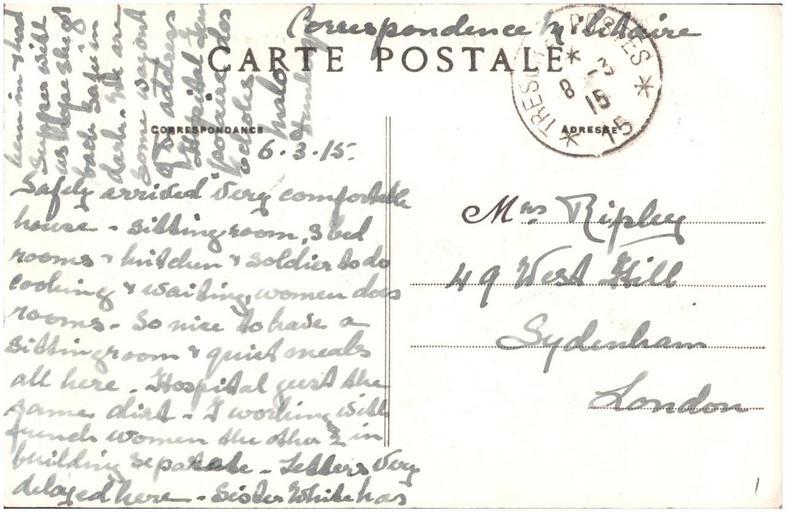 Correspondence Militaire
CARTE POSTALE
TRESOR POSTES
8 3
15
* 15 *
CORRESPONDANCE
ADRESSE
6.3.15.
Safely arrived very comfortable
house - sitting room, 3 bed
rooms & kitchen & soldier to do
cooking & waiting, women does
rooms - So nice to have a
sitting room & quiet meals
all here. Hospital just the
same dirt - I working with
french women the other 2 in
building separate - Letters very
delayed here - Sister White has
been in & had
supper with
us hope she got
back safe in
dark. We are
some way out
address
Hospital
Malo
Mrs Ripley
49 West Hill
Sydenham
London
1